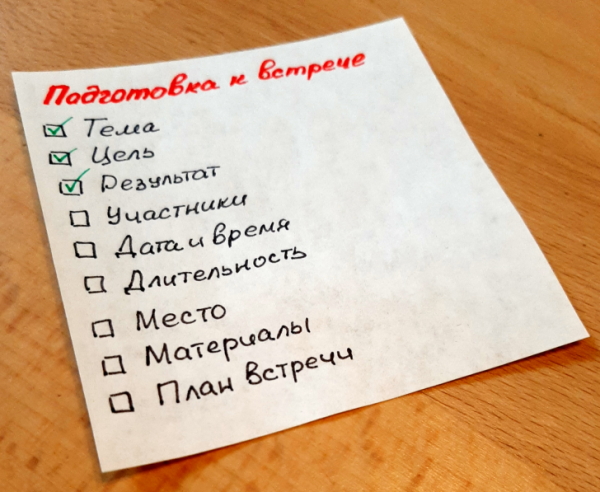 Подготовка к встрече
☑ Тема
☑ Цель
☑ Результат
☐ Участники
☐ Дата и время
☐ Длительность
☐ Место
☐ Материалы
☐ План встречи